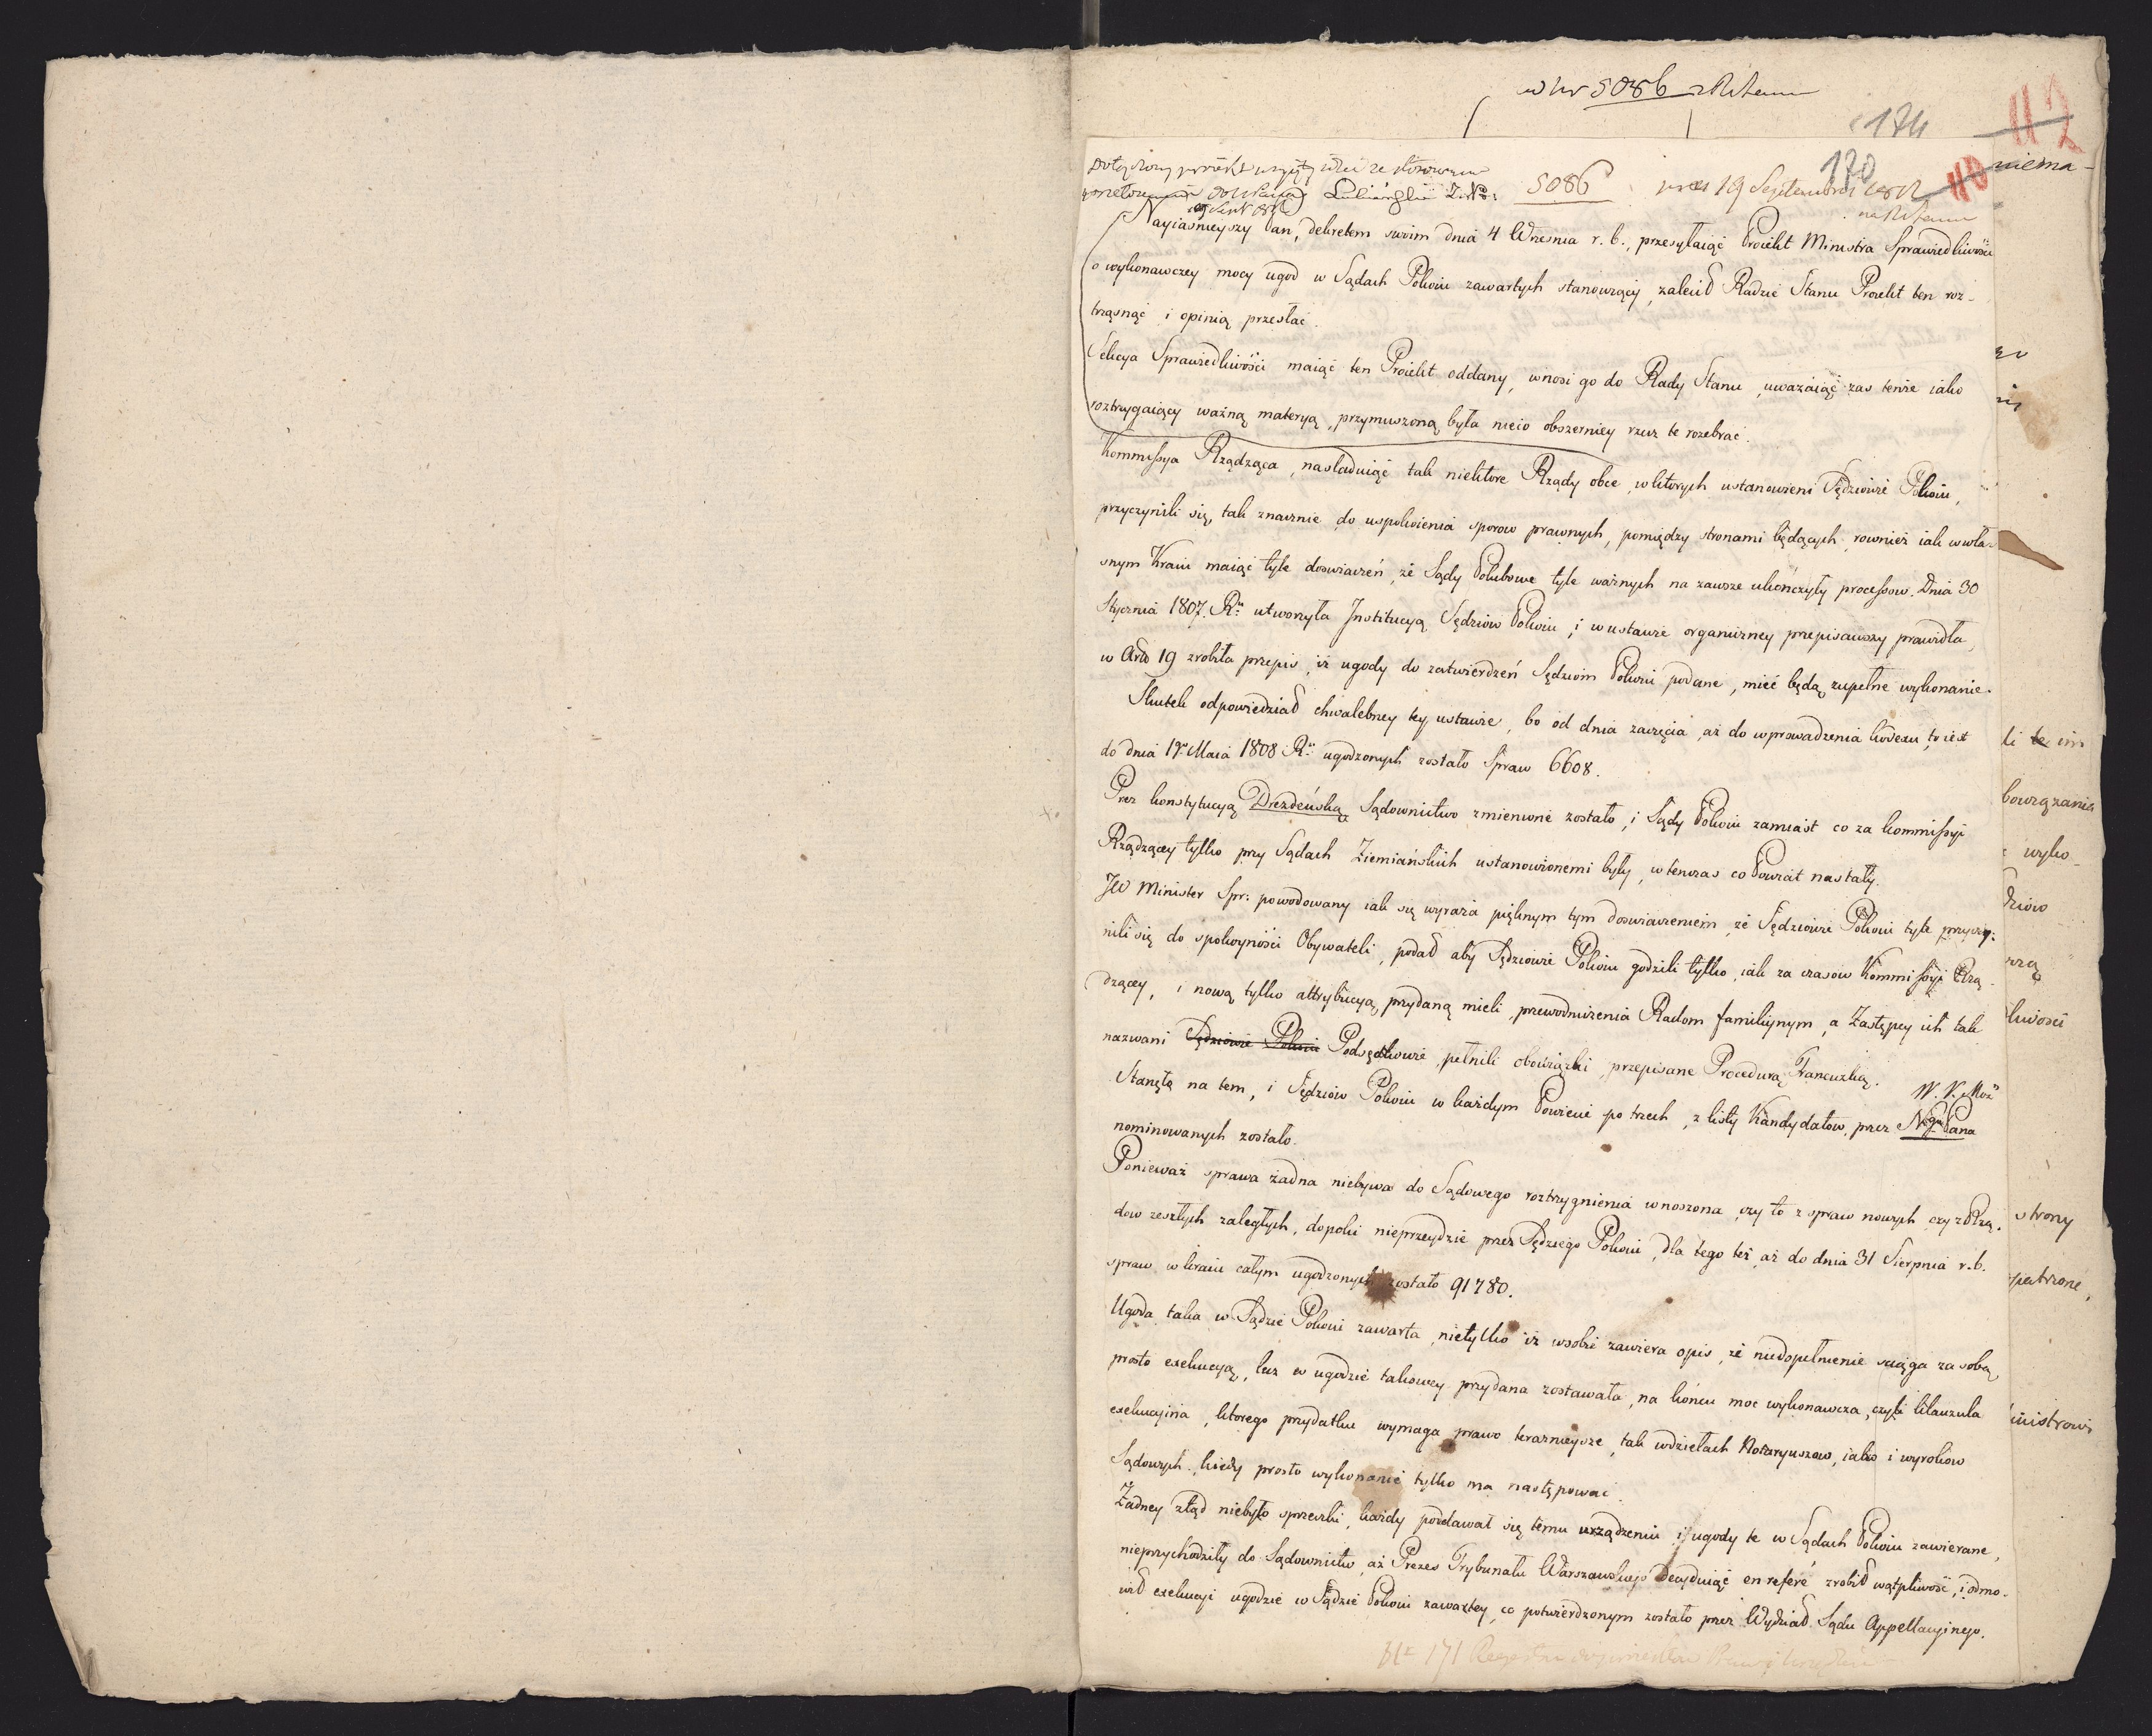 w Nr 5086
174
112
170
110
niema-
Lubiński
5086
pres 19 Septembris 1812
Nayiaśnieyszy Pan, dekretem swoim dnia 4 Wrzesnia r. b., przesyłaiąc Proiekt Ministra Sprawiedliwości
o wykonawczey mocy ugod w Sądach Pokoiu zawartych stanowiący, zalecił Radzie Stanu Proiekt ten roz-
trząsnąć i opinią przesłać.
Sekcya Sprawiedliwości maiąc ten Proiekt oddany, wnosi go do Rady Stanu, uważaiąc zas tenże iako
roztrzygaiący ważną materyą, przymuszoną była nieco obszerniey rzecz te rozebrac.
Kommissya Rządząca, nasladuiąc tak niektore Rządy obce, w ktorych ustanowieni Sędziowie Pokoiu,
przyczynili się, tak znacznie do uspokoienia sporow prawnych, pomiędzy stronami będących, rownież iak w wła-
snym Kraiu maiąc tyle doswiadczeń, że Sądy Polubowne tyle ważnych na zawsze ukończyły processow. Dnia 30
Stycznia 1807. Ru: utworzyła Jnstitucyą Sędziow Pokoiu, i w ustawie organiczney przepisawszy prawidła,
w Arto 19 zrobiła przepis, iż ugody do zatwierdzeń Sędziom Pokoiu podane, mieć będą zupełne wykonanie.
Skutek odpowiedział chwalebney tey ustawie, bo od dnia zaczęcia, aż do wprowadzenia kodexu, to iest
do dnia 1go Maia 1808 Ru: ugodzonych zostało Spraw 6608.
Przez konstytucyą Drezdeńską Sądownictwo zmienione zostało, i Sądy Pokoiu zamiast co za kommissyi
Rządzącey tylko przy Sądach Ziemiańskich ustanowionemi były, wtenczas co Powiat nastały.
JW Minister Spr: powodowany iak się wyraża pięknym tym doswiadczeniem, że Sędziowie Pokoiu tyle przyczy:
nili się do spokoyności Obywateli, podał aby Sędziowie Pokoiu godzili tylko, iak za czasow Kommissyi Rzą-
dzącey, i nową tylko attrybucyą przydaną mieli, przewodniczenia Radom familiynym, a Zastępcy ich tak
nazwani Sędziowie Pokoiu Podsędkowie, pełnili obowiązki przepisane Procedurą Francuzką.
Stanęło na tem, i Sędziow Pokoiu w każdym Powiecie po trzech, z listy Kandydatow, przez Ngo Pana
W. K. Mość
nominowanych zostało.
Ponieważ sprawa żadna niebywa do Sądowego roztrzygnienia wnoszona, czy to z spraw nowych czy z Rzą-
dow zeszłych zaległych, dopoki nieprzeydzie przez Sędziego Pokoiu, dla tego też, aż do dnia 31 Sierpnia r. b.
spraw w kraiu całym ugodzonych zostało 91780.
Ugoda taka w Sądzie Pokoiu zawarta, nietylko iż w sobie zawiera opis, że niedopełnienie sciąga za sobą
prosto exekucyą, lecz w ugodzie takowey przydana zostawała, na końcu moc wykonawcza, czyli klauzula
exekucyina, ktorego przydatku wymaga prawo teraznieysze, tak w dziełach Notaryuszow, iako i wyrokow
Sądowych, kiedy prosto wykonanie tylko ma nastąpować.
Żadney ztąd niebyło sprzeczki, każdy poddawał się temu urządzeniu i ugody te w Sądach Pokoiu zawierane,
nieprzychodziły do Sądownictw, aż Prezes Trybunału Warszawskiego decyduiąc en referé zrobił wątpliwość, i odmo-
wił exekucyi ugodzie w Sądzie Pokoiu zawartey, co potwierdzonym zostało przez Wydział Sądu Appellacyinego.
li te im
bowązania
wyko-
dziow
rzą
liwości
strony
patrzone,
inistrowi